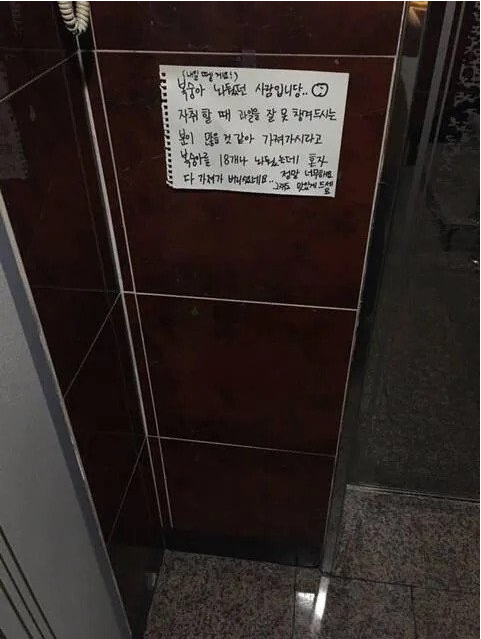 (내일 뗄 거예요!)
복숭아 놔뒀던 사람입니당..
자취할 때 과일을 잘 못 챙겨드시는
분이 많을 것 같아 가져가시라고
복숭아를 18개나 놔뒀는데 혼자
다 가져가 버리셨네요.. 정말 너무해요
그래도 맛있게 드세요